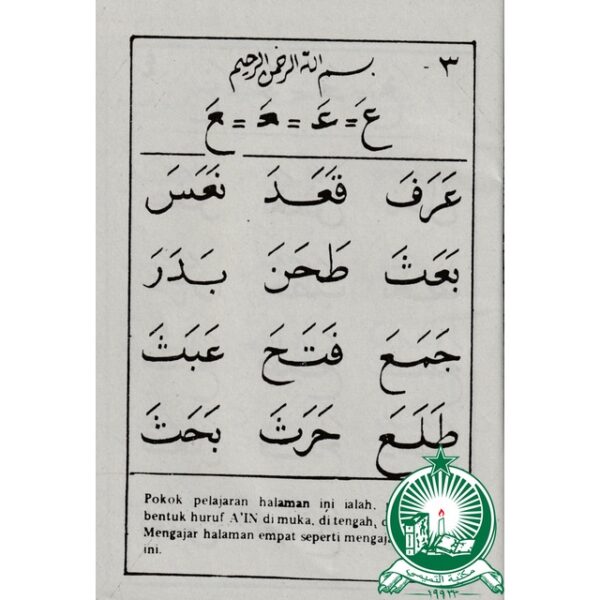 ٣ -
بسم الله الرحمن الرحيم
عَ = عَـ = ـعَـ = ـعَ
عَرَفَ قَعَدَ نَعَسَ
بَعَثَ طَحَنَ بَدَرَ
جَمَعَ فَتَحَ عَبَثَ
طَلَعَ حَرَثَ بَحَثَ
Pokok pelajaran halaman ini ialah.
bentuk huruf A'IN di muka, di tengah,
Mengajar halaman empat seperti
ini.
مكتبة التسيمي